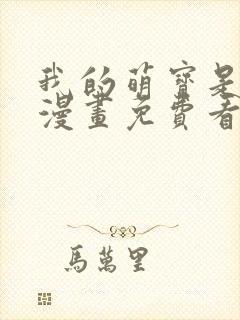 我的萌寶是
漫畫免費看
馬萬里